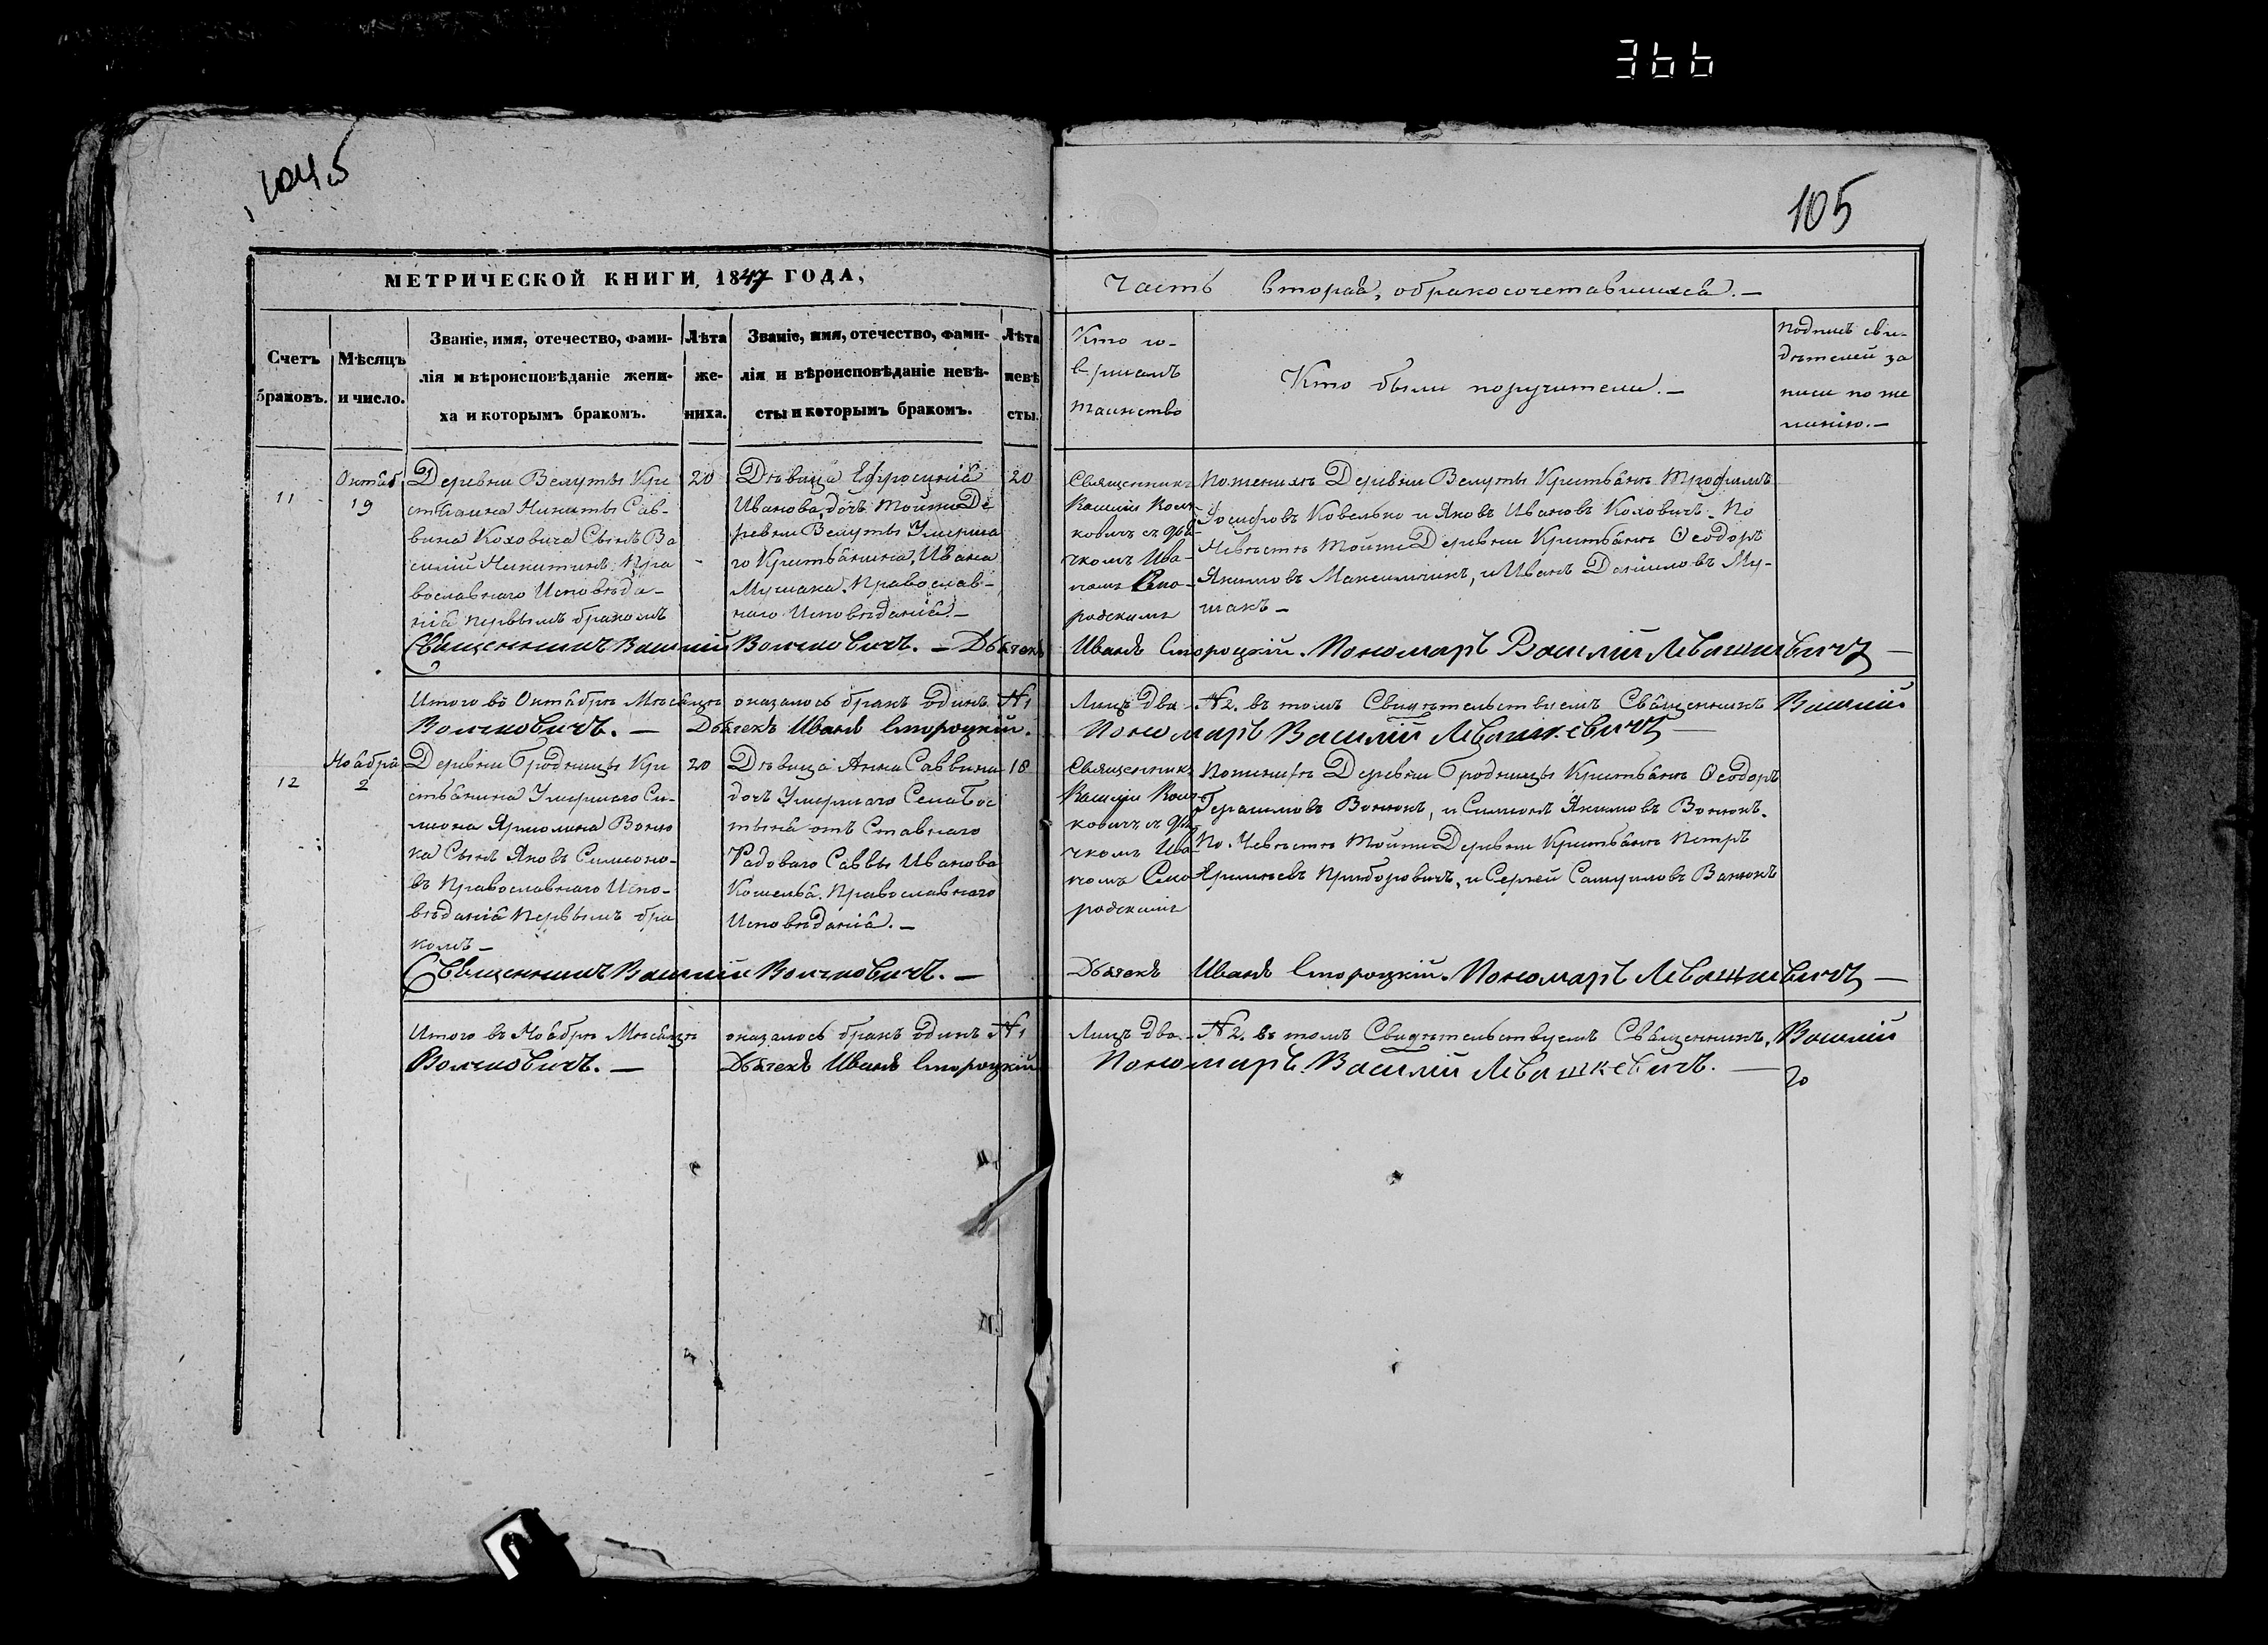 366
1045
105
МЕТРИЧЕСКОЙ КНИГИ, 1847 ГОДА,
Часть вторая, обракосочетавшихся. —
Счетъ браковъ.
Мѣсяцъ и число.
Званіе, имя, отечество, фами-
лія и вѣроисповѣданіе жени-
ха и которымъ бракомъ.
Лѣта
же-
ниха.
Званіе, имя, отечество, фами-
лія и вѣроисповѣданіе невѣ-
сты и которымъ бракомъ.
Лѣта
невѣ
сты.
Кто со-
вершалъ
таинство
Кто были поручители. —
Подпись сви-
дѣтелей за
писи по же
ланію. —
11
Октяб
19
Деревни Велуты Кре
стьянина Никиты Сав-
вина Коховича Сынъ Ва
силій Никитинъ Пра
вославнаго Исповѣда-
нія первымъ бракомъ
20
Дѣвица Ефросинія
Иванова, дочь тойже Де
ревни Велуты Умерша
го Крестьянина, Ивана
Мушака. Православ-
наго Исповѣданія. —
20
Священникъ
Василій Волч
ковичъ съ дья
чкомъ Ива-
номъ Сто-
родскимъ
По женихѣ Деревни Велуты Крестьяне Трофимъ
Іосифовъ Ковелько и Яковъ Ивановъ Коховичъ. По
Невѣстѣ тойже Деревни Крестьяне Ѳеодоръ
Якимовъ Максимчикъ, и Иванъ Даниловъ Му-
шакъ —
Священникъ Василій Волчковичъ. — Дьячекъ Иванъ Стороцкій. Пономарь Василій Левашкевичъ —
Итого въ Октябрѣ Мѣсяцѣ оказалось бракъ одинъ №1 Лицъ два №2. въ томъ Свидѣтельствуемъ Священникъ Василій
Волчковичъ. — Дьячекъ Иванъ Стороцкій. Пономарь Василій Левашкевичъ —
12
Ноября
2
Деревни Бродницы Кре
стьянина Умершаго Си-
меона Ярмолина Воню
ка Сынъ Яковъ Симеоно-
въ Православнаго Испо-
вѣданія Первымъ бра
комъ —
20
Дѣвица Анна Саввина
дочь Умершаго Села Бос
тыня отъ Ставнаго
Радоваго Саввы Иванова
Кошеля. Православнаго
Исповѣданія. —
18
Священникъ
Василій Волч
ковичъ съ дья
чкомъ Ива
номъ Сто
родскимъ
По женихѣ Деревни Бродницы Крестьяне Ѳеодоръ
Герасимовъ Вонюкъ, и Симеонъ Якимовъ Вонюкъ.
По Невѣстѣ тойже Деревни Крестьяне Петръ
Приборовичъ, и Сергей Самуиловъ Ванюкъ
Священникъ Василій Волчковичъ. — Дьячекъ Иванъ Стороцкій. Пономарь Левашкевичъ —
Итого въ Ноябрѣ Мѣсяцѣ оказалось бракъ одинъ №1 Лицъ два. №2. въ томъ Свидѣтельствуемъ Священникъ, Василій
Волчковичъ. — Дьячекъ Иванъ Стороцкій Пономарь Василій Левашкевичъ. —